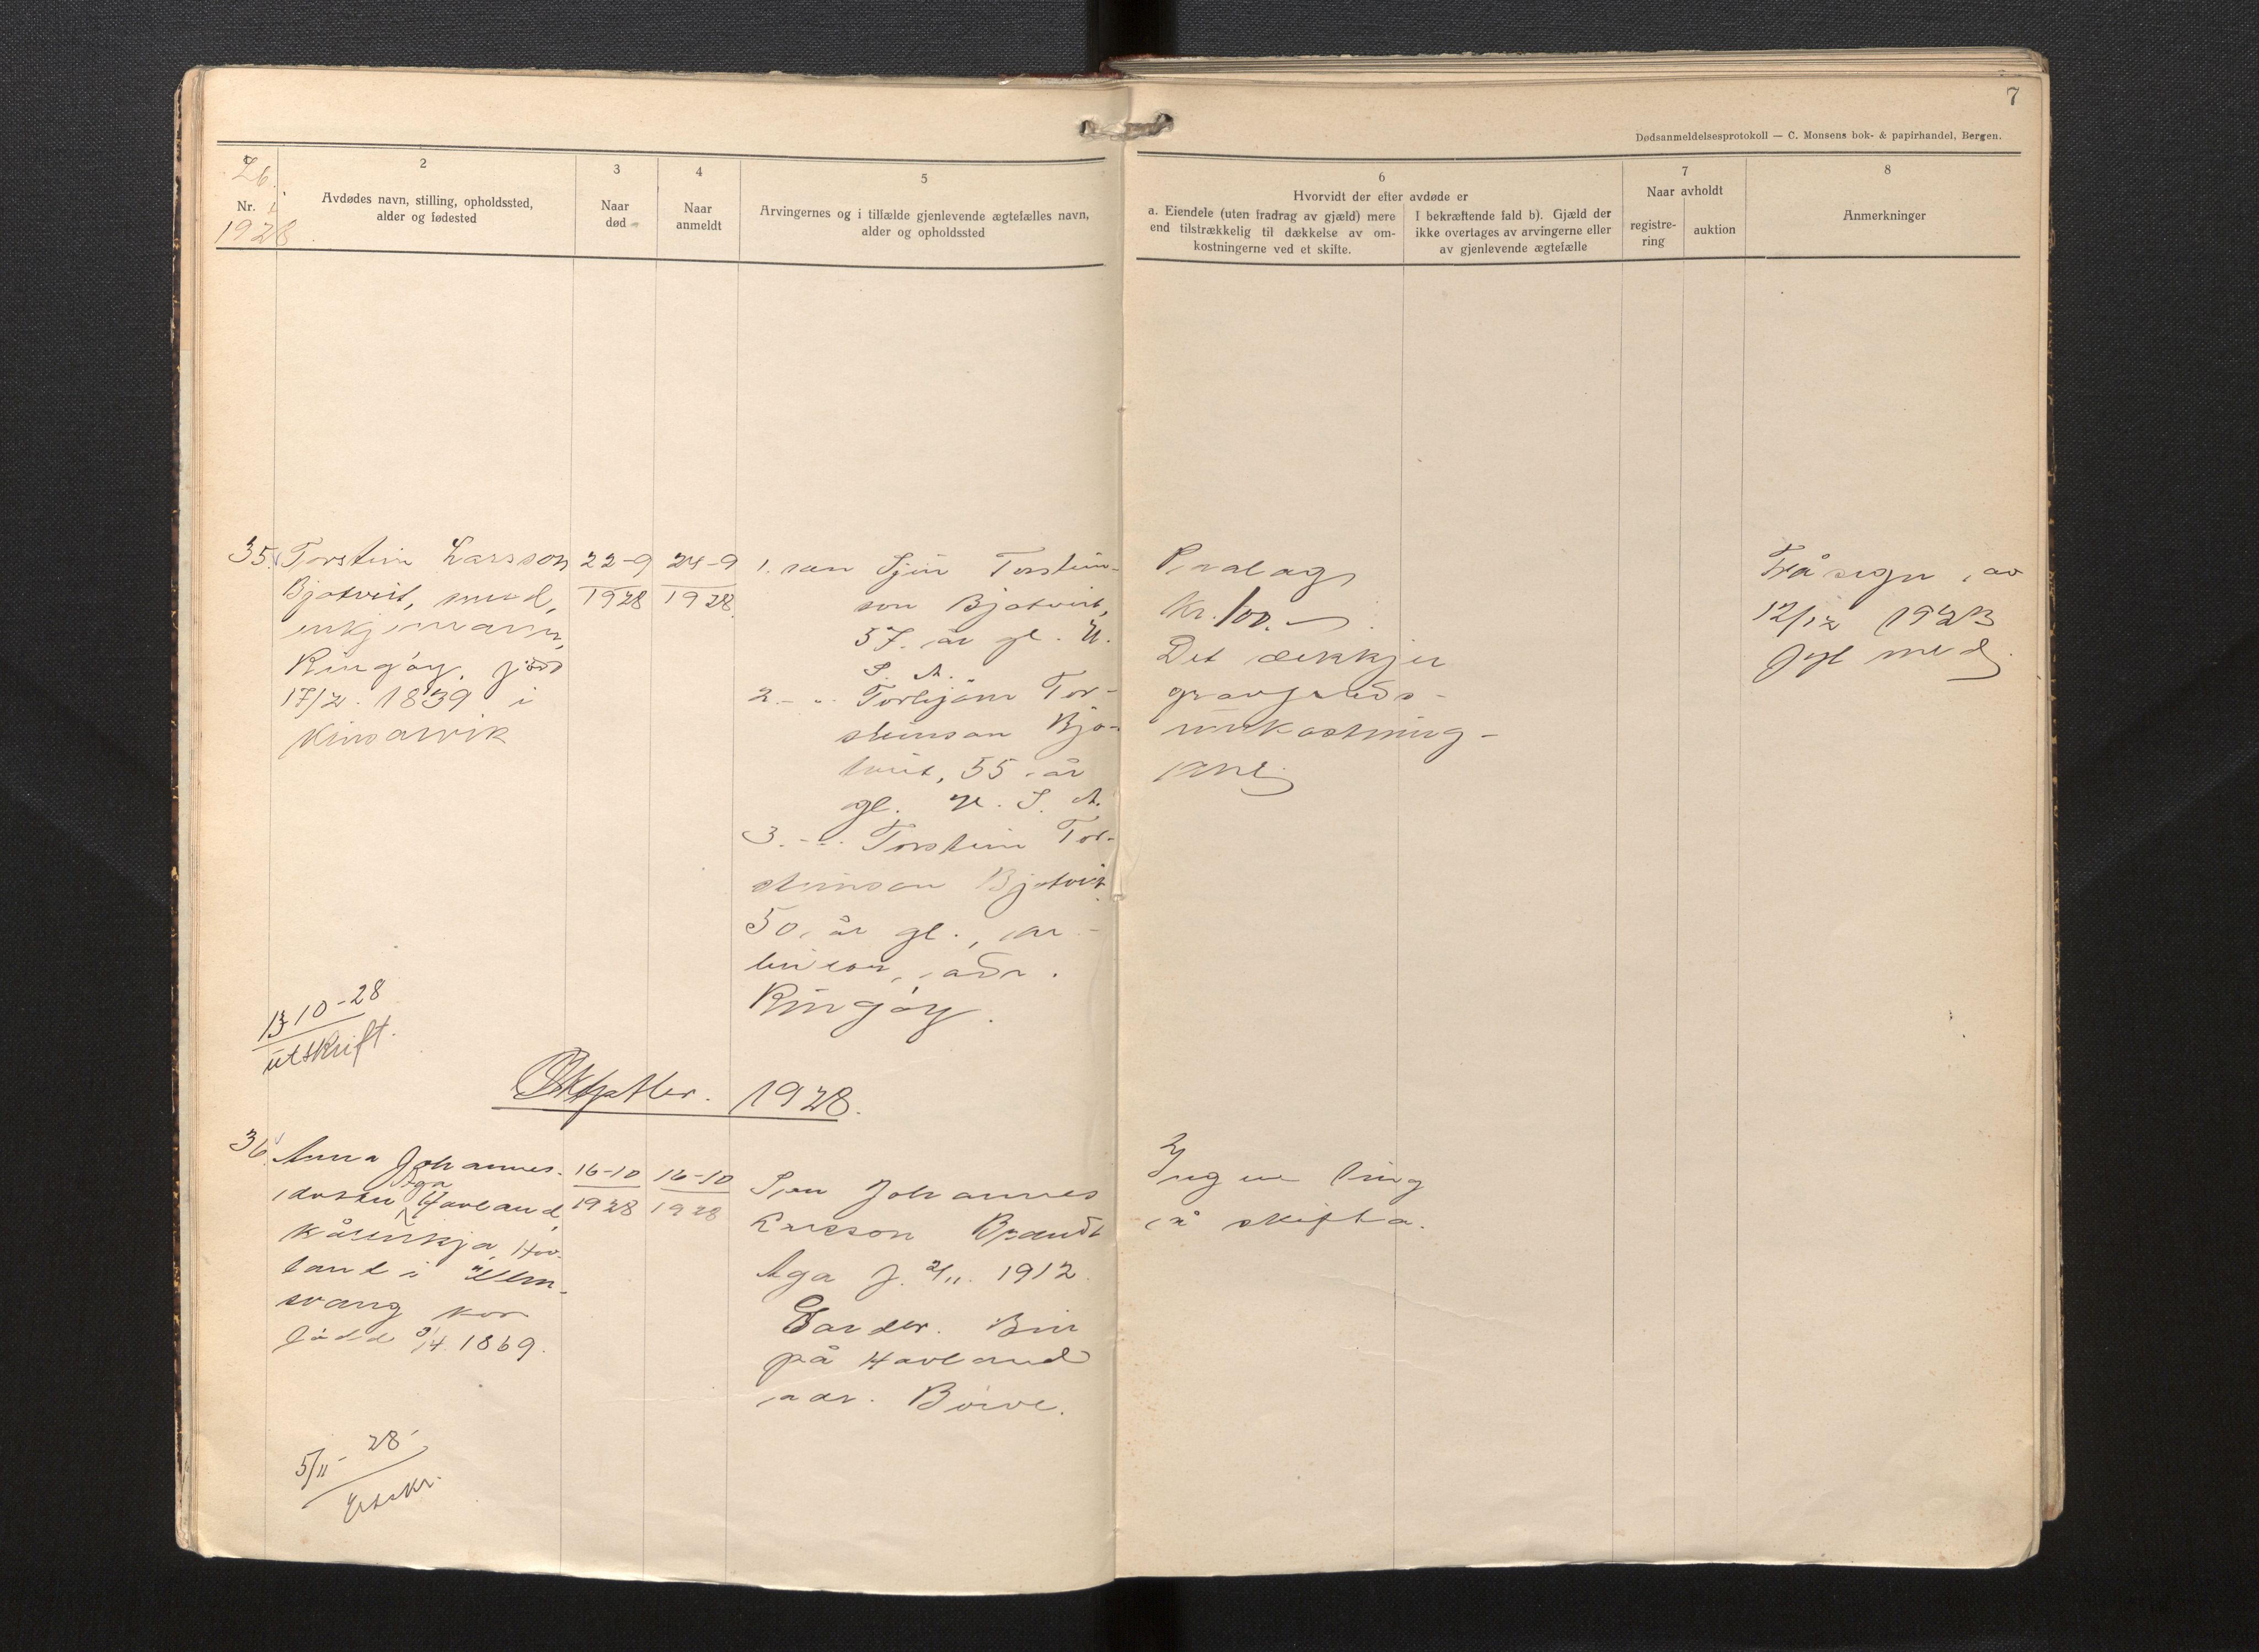 7
Dødsanmeldelsesprotokoll — C. Monsens bok- & papirhandel, Bergen.
Nr.
1928
2
Avdødes navn, stilling, opholdssted,
alder og fødested
3
Naar
død
4
Naar
anmeldt
5
Arvingernes og i tilfælde gjenlevende ægtefælles navn,
alder og opholdssted
6
Hvorvidt der efter avdøde er
a. Eiendele (uten fradrag av gjæld) mere
end tilstrækkelig til dækkelse av om-
kostningerne ved et skifte.
I bekræftende fald b). Gjæld der
ikke overtages av arvingerne eller
av gjenlevende ægtefælle
7
Naar avholdt
registre-
ring
auktion
8
Anmerkninger
35. Torstein Larsson
Bjotveit,
enkjemann,
Ringöy, född
17/2. 1839 i
Kinsarvik
22-9
1928
24-9
1928
1. son Torstein-
son Bjotveit,
57 år gl. U.
S. A.
2. - " - Torbjörn Tor-
steinson Bjo-
tveit, 55 år
gl. U. S. A.
3. - " - Torstein Tor-
steinson Bjotveit
50 år gl., ar-
beider, adr.
Ringöy.
Kr. 100.
Det dekkjer
gravferds-
umkostning-
ane
Fråsegn av
12/12 1923
fyl med
13/10-28
utskrift.
Oktober. 1928.
36. Anna Johannes-
dotter Aga Hovland,
Kårenkja, Hov-
land i Ullens-
vang
född 9/4 1869.
16-10
1928
16-10
1928
Son Johannes
Larsson Brandt
Aga f. 2/11. 1912.
Gardbr. Bur
på Hovland
adr. Börve.
Ingen ting
å skifta.
5/11 - 28
Utskr.